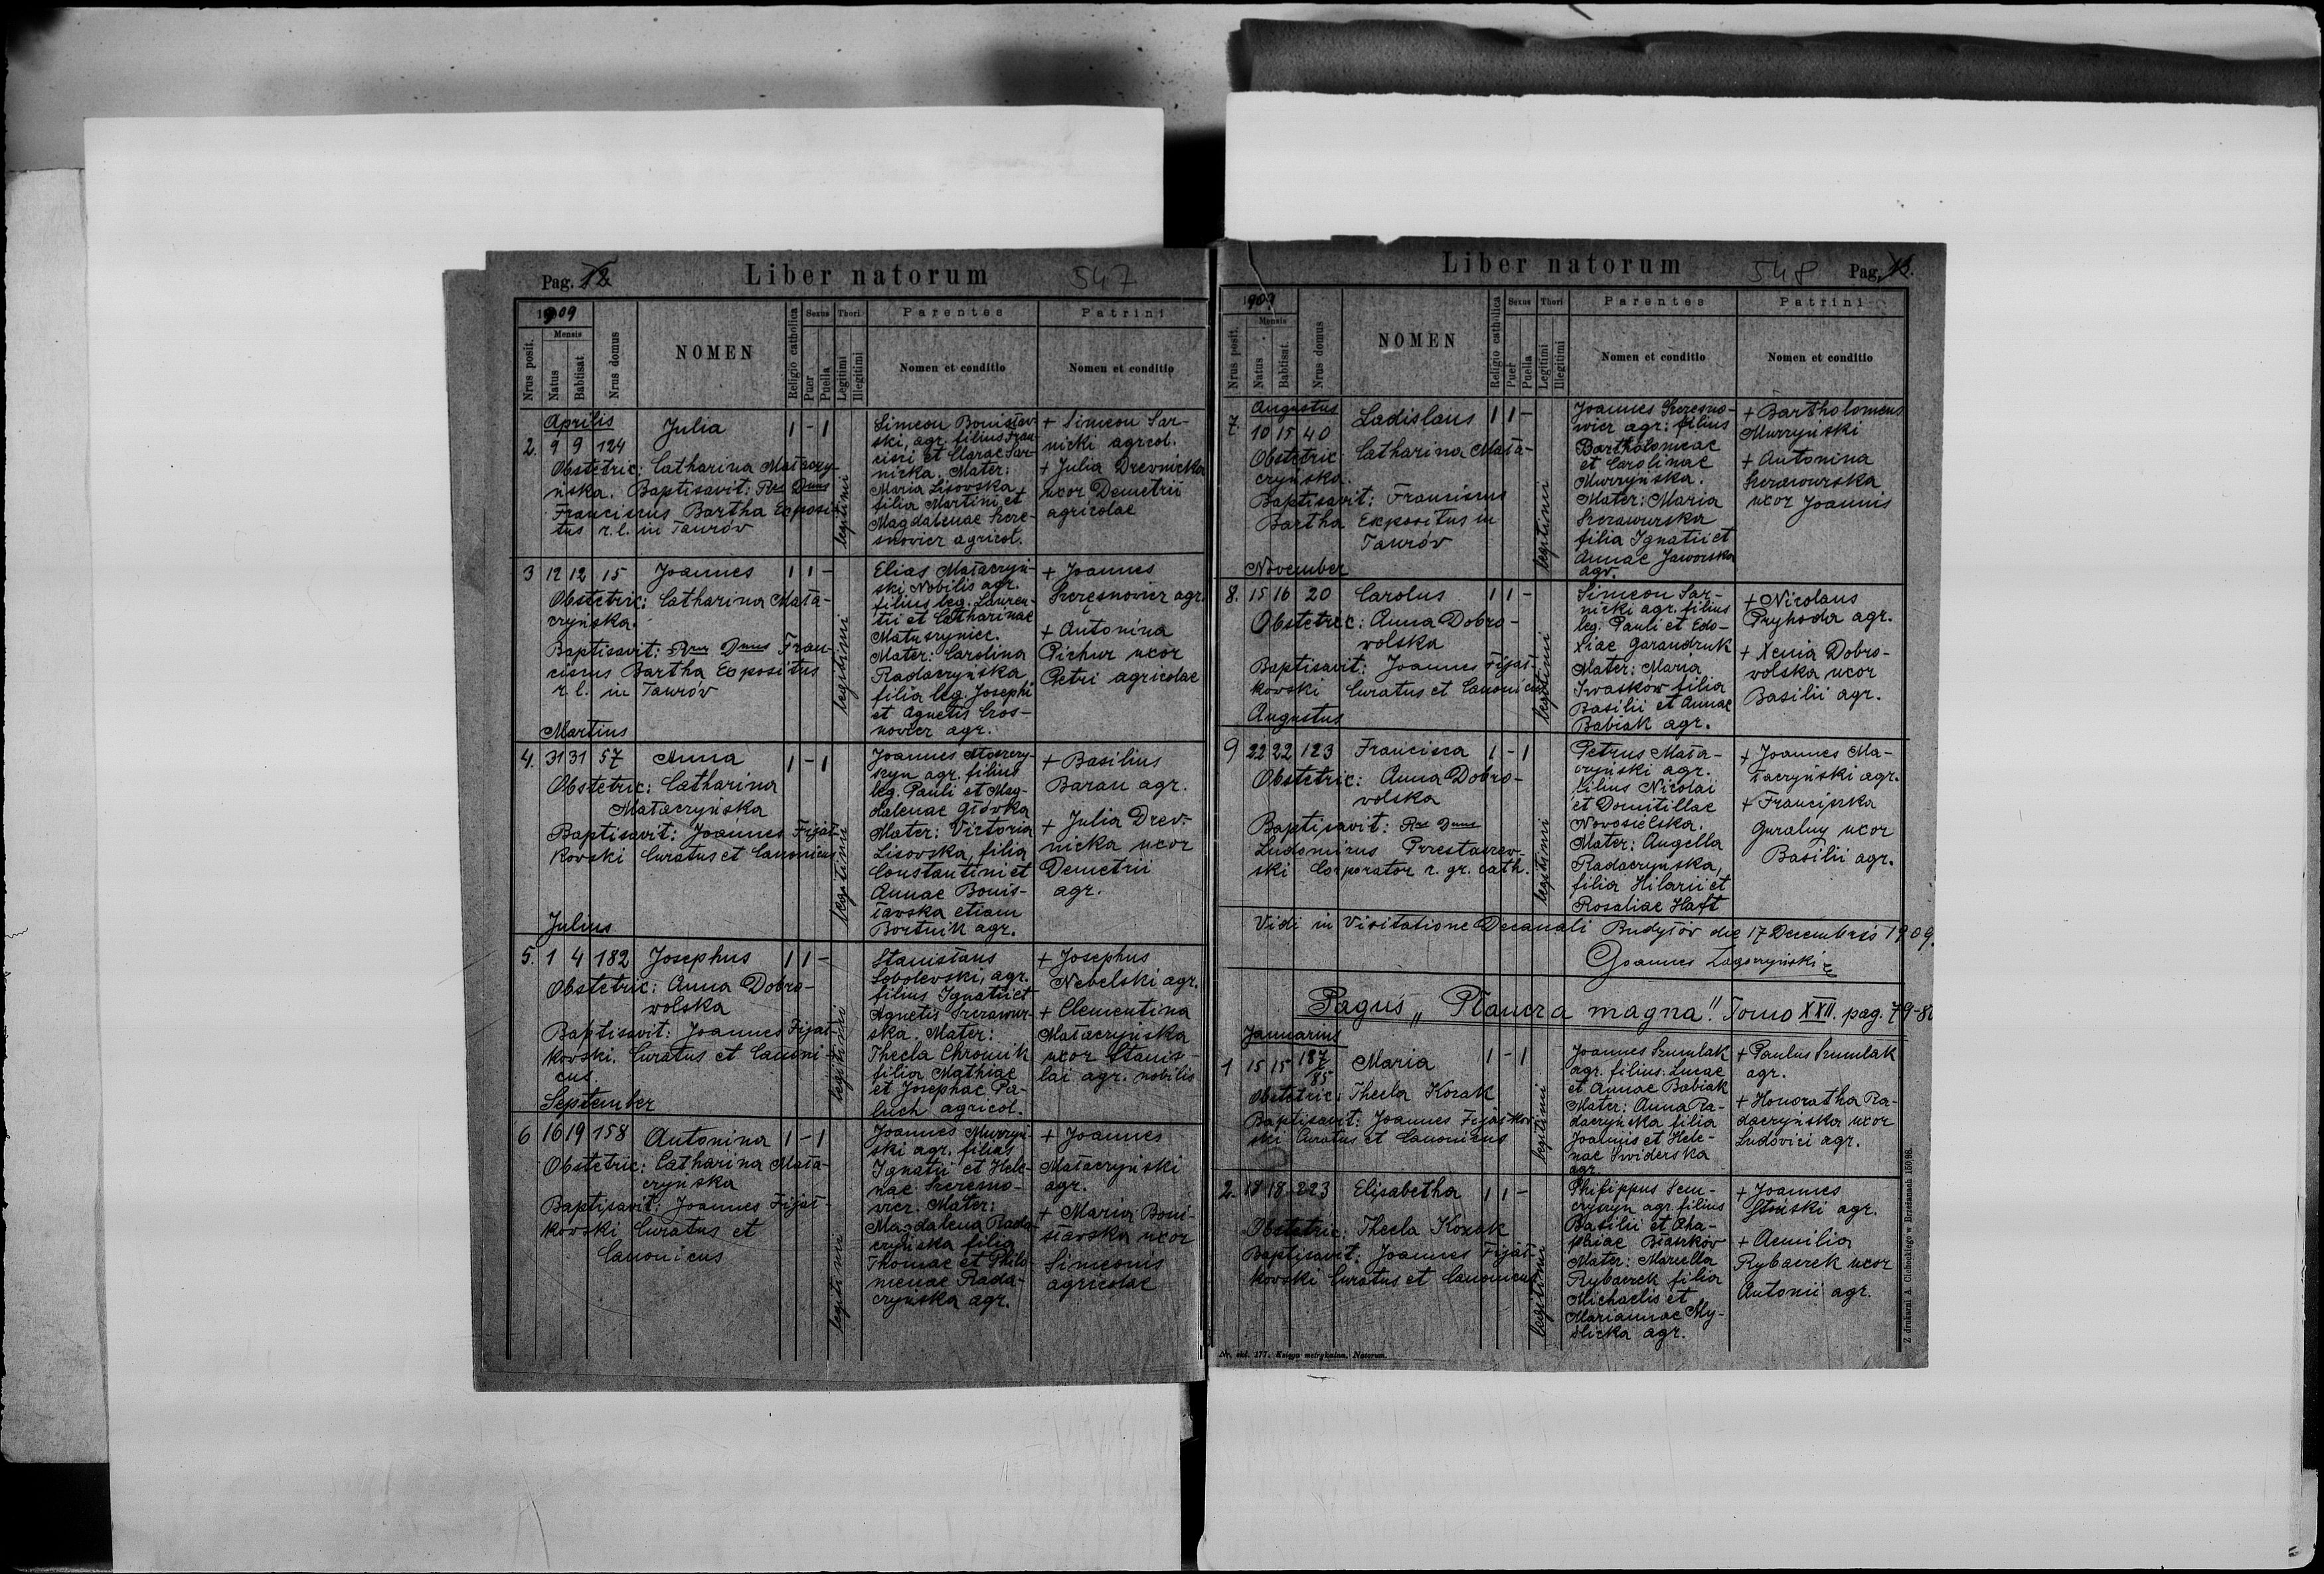 Pag. 12
Liber natorum
547
1909
Mensis
Nrus posit.
Natus
Babtisat
Nrus domus
NOMEN
Religio catholica
Sexus
Puer
Puella
Thori
Legitimi
Illegitimi
Parentes
Nomen et conditio
Patrini
Nomen et conditio
Aprilis
2. 9 9 124 Julia 1 - 1
Obstetric: Catharina Mataczy-
ńska. Baptisavit: Rus Dnus
Franciscus Bartha Exposi-
tus r. l. in Taurów
legitimi
Simeon Bonisław-
ski, agr. filius Fran-
cisci et Clarae Sar-
nicka. Mater:
Maria Lisovska
filia Martini et
Magdalenae Szcze-
snovicz agricol.
+ Simeon Sar-
nicki agricol.
+ Julia Drevnicka
uxor Demetrii
agricolae
3 12 12 15 Joannes 1 1 -
Obstetric: Catharina Mata-
czyńska.
Baptisavit: Rus Dnus Fran-
ciscus Bartha Expositus
r. l. in Taurów
legitimi
Elias Mataczyń-
ski Nobilis agr.
filius leg. Lauren-
tii et Catharinae
Mater: Carolina
Radaczyńska
filia leg. Josephi
et Agnetis Cros-
novicz agr.
+ Joannes
Szczęsnovicz agr.
+ Antonina
Pichur uxor
Petri agricolae
Martius
4. 31 31 57 Anna 1 - 1
Obstetric: Catharina
Mataczyńska
Baptisavit: Joannes Fijał-
kovski Curatus et Canonicus
legitimi
Joannes Moszczy-
szyn agr. filius
leg. Pauli et Mag-
dalenae Główka
Mater: Victoria
Lisovska, filia
Constantini et
Annae Bonis-
ławska etiam
Bortnik agr.
+ Basilius
Baran agr.
+ Julia Drev-
nicka uxor
Demetrii
agr.
Julius
5. 1 4 182 Josephus 1 1 -
Obstetric: Anna Dobro-
wolska
Baptisavit: Joannes Fijał-
kovski. Curatus et Canoni-
cus
legitimi
Stanisłaus
Sobolevski, agr.
filius Ignatii et
Agnetis Szczawur-
ska. Mater:
Thecla Chromik
filia Mathiae
et Josephae Pa-
luch agricol.
+ Josephus
Nebelski agr.
+ Clementina
Mataczyńska
uxor Stanis-
lai agr. nobilis
September
6 16 19 158 Antonina 1 - 1
Obstetric: Catharina Mata-
czyńska
Baptisavit: Joannes Fijał-
kovski Curatus et
Canonicus
legitimi
Joannes Murzyń-
ski agr. filius
Ignatii et Hele-
nae Szczesno-
vicz. Mater:
Magdalena Rada-
czyńska filia
Thomae et Philo-
menae Rada-
czyńska agr.
+ Joannes
Mataczyński
agr.
+ Maria Boni-
sławska uxor
Simeonis
agricolae
Liber natorum
548
Pag.
1909
Mensis
Nrus posit.
Natus
Babtisat.
Nrus domus
NOMEN
Religio catholica
Sexus
Puer
Puella
Thori
Legitimi
Illegitimi
Parentes
Nomen et conditio
Patrini
Nomen et conditio
Augustus
7. 10 15 40 Ladislaus 1 1 -
Obstetric Catharina Mata-
czyńska.
Baptisavit: Franciscus
Bartha Expositus in
Taurów
legitimi
Joannes Szczesno-
wicz agr: filius
Bartholomeae
et Carolinae
Murzyńska.
Mater: Maria
Szczawurska
filia Ignatii et
Annae Jaworska
agr.
+ Bartholomeus
Murzyński
+ Antonina
Szczawurska
uxor Joannis
November
8. 15 16 20 Carolus 1 1 -
Obstetric: Anna Dobro-
wolska
Baptisavit: Joannes Fijał-
kovski Curatus et Canonicus
legitimi
Simeon Sar-
nicki agr. filius
leg. Pauli et Edo-
xiae Garandzuk
Mater: Maria
Iwasków filia
Basilii et Annae
Babiak agr.
+ Nicolaus
Pryhoda agr.
+ Xenia Dobro-
volska uxor
Basilii agr.
Augustus
9 22 22 123 Francisca 1 - 1
Obstetric: Anna Dobro-
volska
Baptisavit: Rus Dnus
Ludomirus Przestarzew-
ski Cooperator r. gr. cath.
legitimi
Petrus Mata-
czyński agr.
filius Nicolai
et Domitillae
Novosielska.
Mater: Angella
Radaczyńska,
filia Hilarii et
Rosaliae Haft
+ Joannes Ma-
taczyński agr.
+ Franciszka
Guralny uxor
Basilii agr.
Vidi in Visitatione Decanali Budyłów die 17 Decembris 1909.
Joannes Zagorzyński
Pagus „Płaucza magna". Tomo XXII. pag. 79-8
Januarius
1 15 15 187/85 Maria 1 - 1
Obstetric: Thecla Kozak
Baptisavit: Joannes Fijałkov-
ski Curatus et Canonicus
legitimi
Joannes Szumlak
agr. filius: Lucae
et Annae Babiak
Mater: Anna Ra-
daczyńska filia
Joannis et Hele-
nae Swiderska
agr.
+ Paulus Szumlak
agr.
+ Honoratha Ra-
daczyńska uxor
Ludovici agr.
2. 18 18 223 Elisabetha 1 1 -
Obstetric: Thecla Kozak
Baptisavit: Joannes Fijał-
kovski Curatus et Canonicus
legitimi
Philippus Sem-
czyszyn agr. filius
Basilii et Aha-
phiae Białików
Mater: Mariella
Rybaczek filia
Michaelis et
Mariannae My-
slicka agr.
+ Joannes
Słoński agr.
+ Aemilia
Rybaczek uxor
Antonii agr.
Nr. skł. 177. Księga metrykalna. Natorum.
Z drukarni A. Cichockiego w Brzeżanach 150/98.